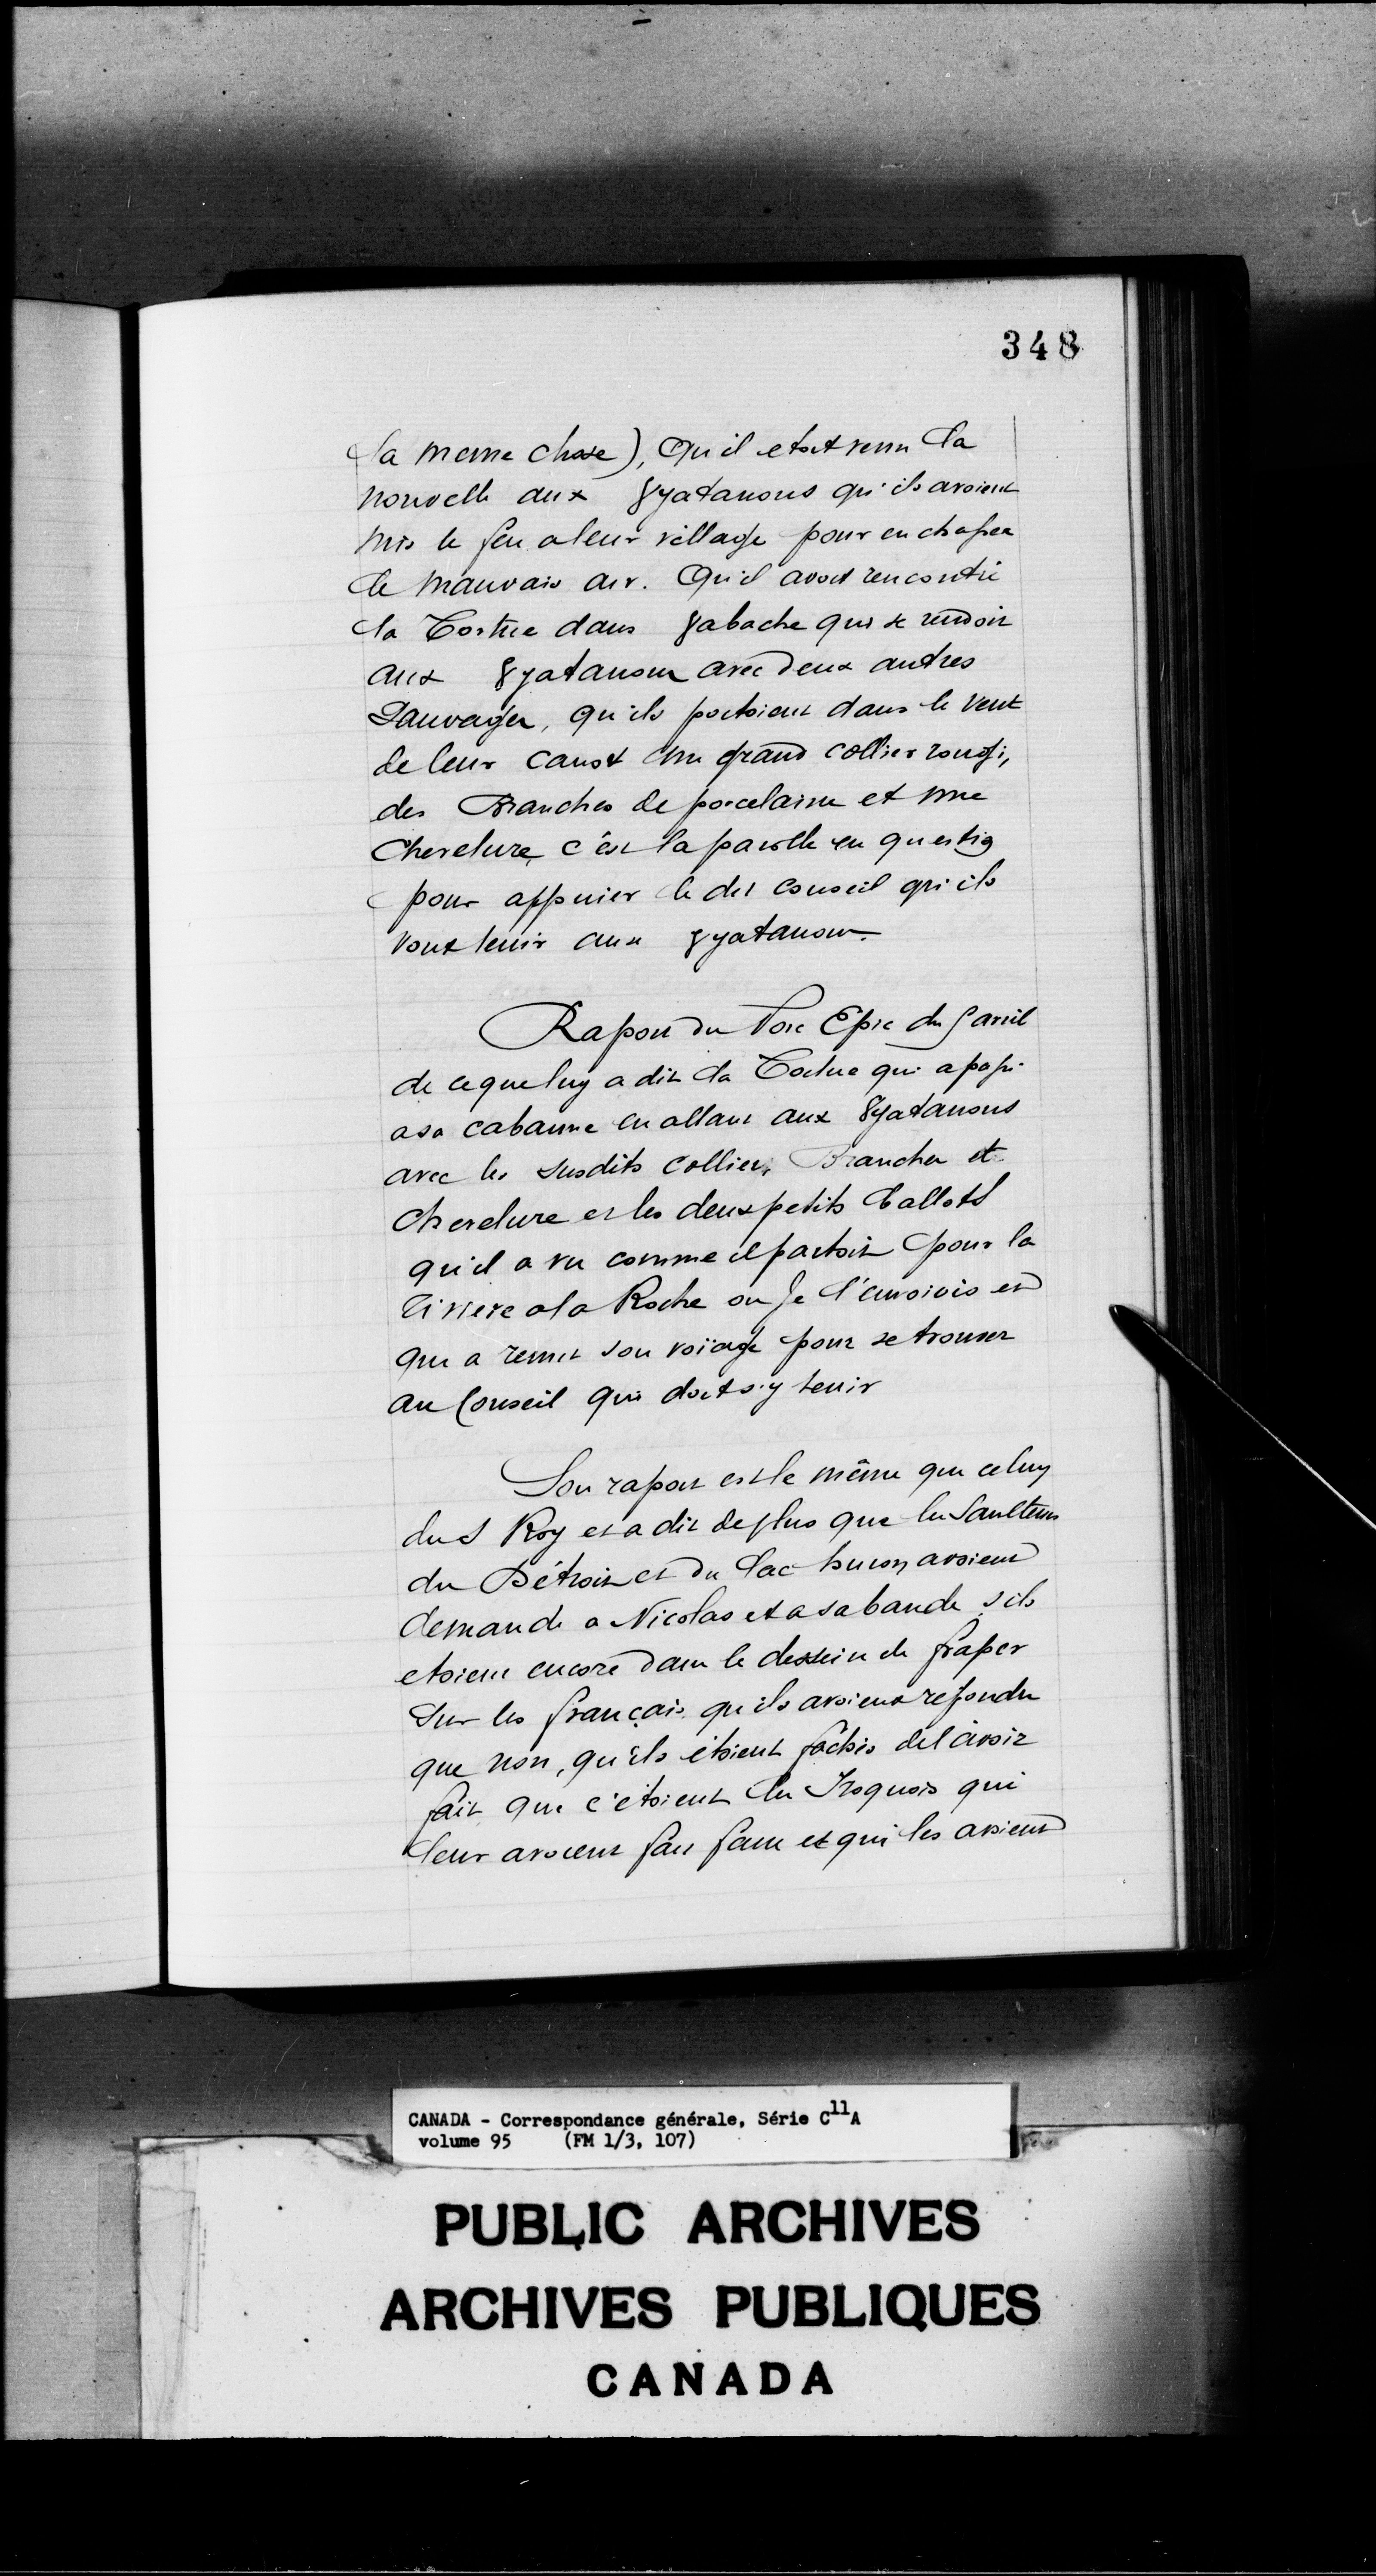 348
la meme chose), Qu'il etoit venu la
nouvelle aux 8yatanons qu'ils avoient
mis le feu a leur village pour en chasser
le mauvais air. Qu'il avoit rencontré
la Tortue dans 8abache qui se rendoit
aux 8yatanons avec deux autres
Sauvages, qu'ils portoient dans le vent
de leur canot un grand collier rougi,
des Branches de porcelaine et une
Chevelure, c'est la parolle en questio
pour appuier le dit conseil qu'ils
vont tenir aux 8yatanons.
Raport du Porc Epic du
de ce que luy a dit la Tortue qui a passé
a sa cabanne en allant aux 8yatanons
avec les susdits collier, Branches et
Chevelure et les deux petits ballots
qu'il a vu comme il partoit pour la
riviere a la Roche ou Je l'envoiois et
qui a remis son voïage pour se trouver
au Conseil qui doit s'y tenir
Son raport est le même que celuy
du S Roy et a dit de plus que les Saulteurs
du Détroit et du lac huron avoient
demandé a Nicolas et a sa bande s'ils
etoient encore dans le dessein de fraper
sur les français qu'ils avoient repondu
que non, qu'ils étoient fachés de l'avoir
fait que c'etoient les Iroquois qui
leur avoient fait faire et qui les avoient
CANADA - Correspondance générale, Série C11A
volume 95 (FM 1/3, 107)
PUBLIC ARCHIVES
ARCHIVES PUBLIQUES
CANADA